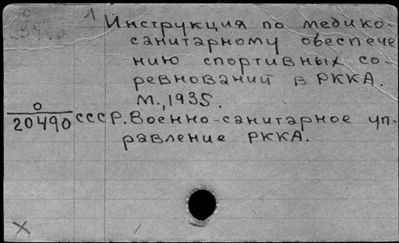 1 Инструкция по медико-
санитарному обеспече
нию спортивных со-
ревнований в РККА.
М., 1935.
0
20490 СССР. Военно-санитарное уп-
равление РККА.